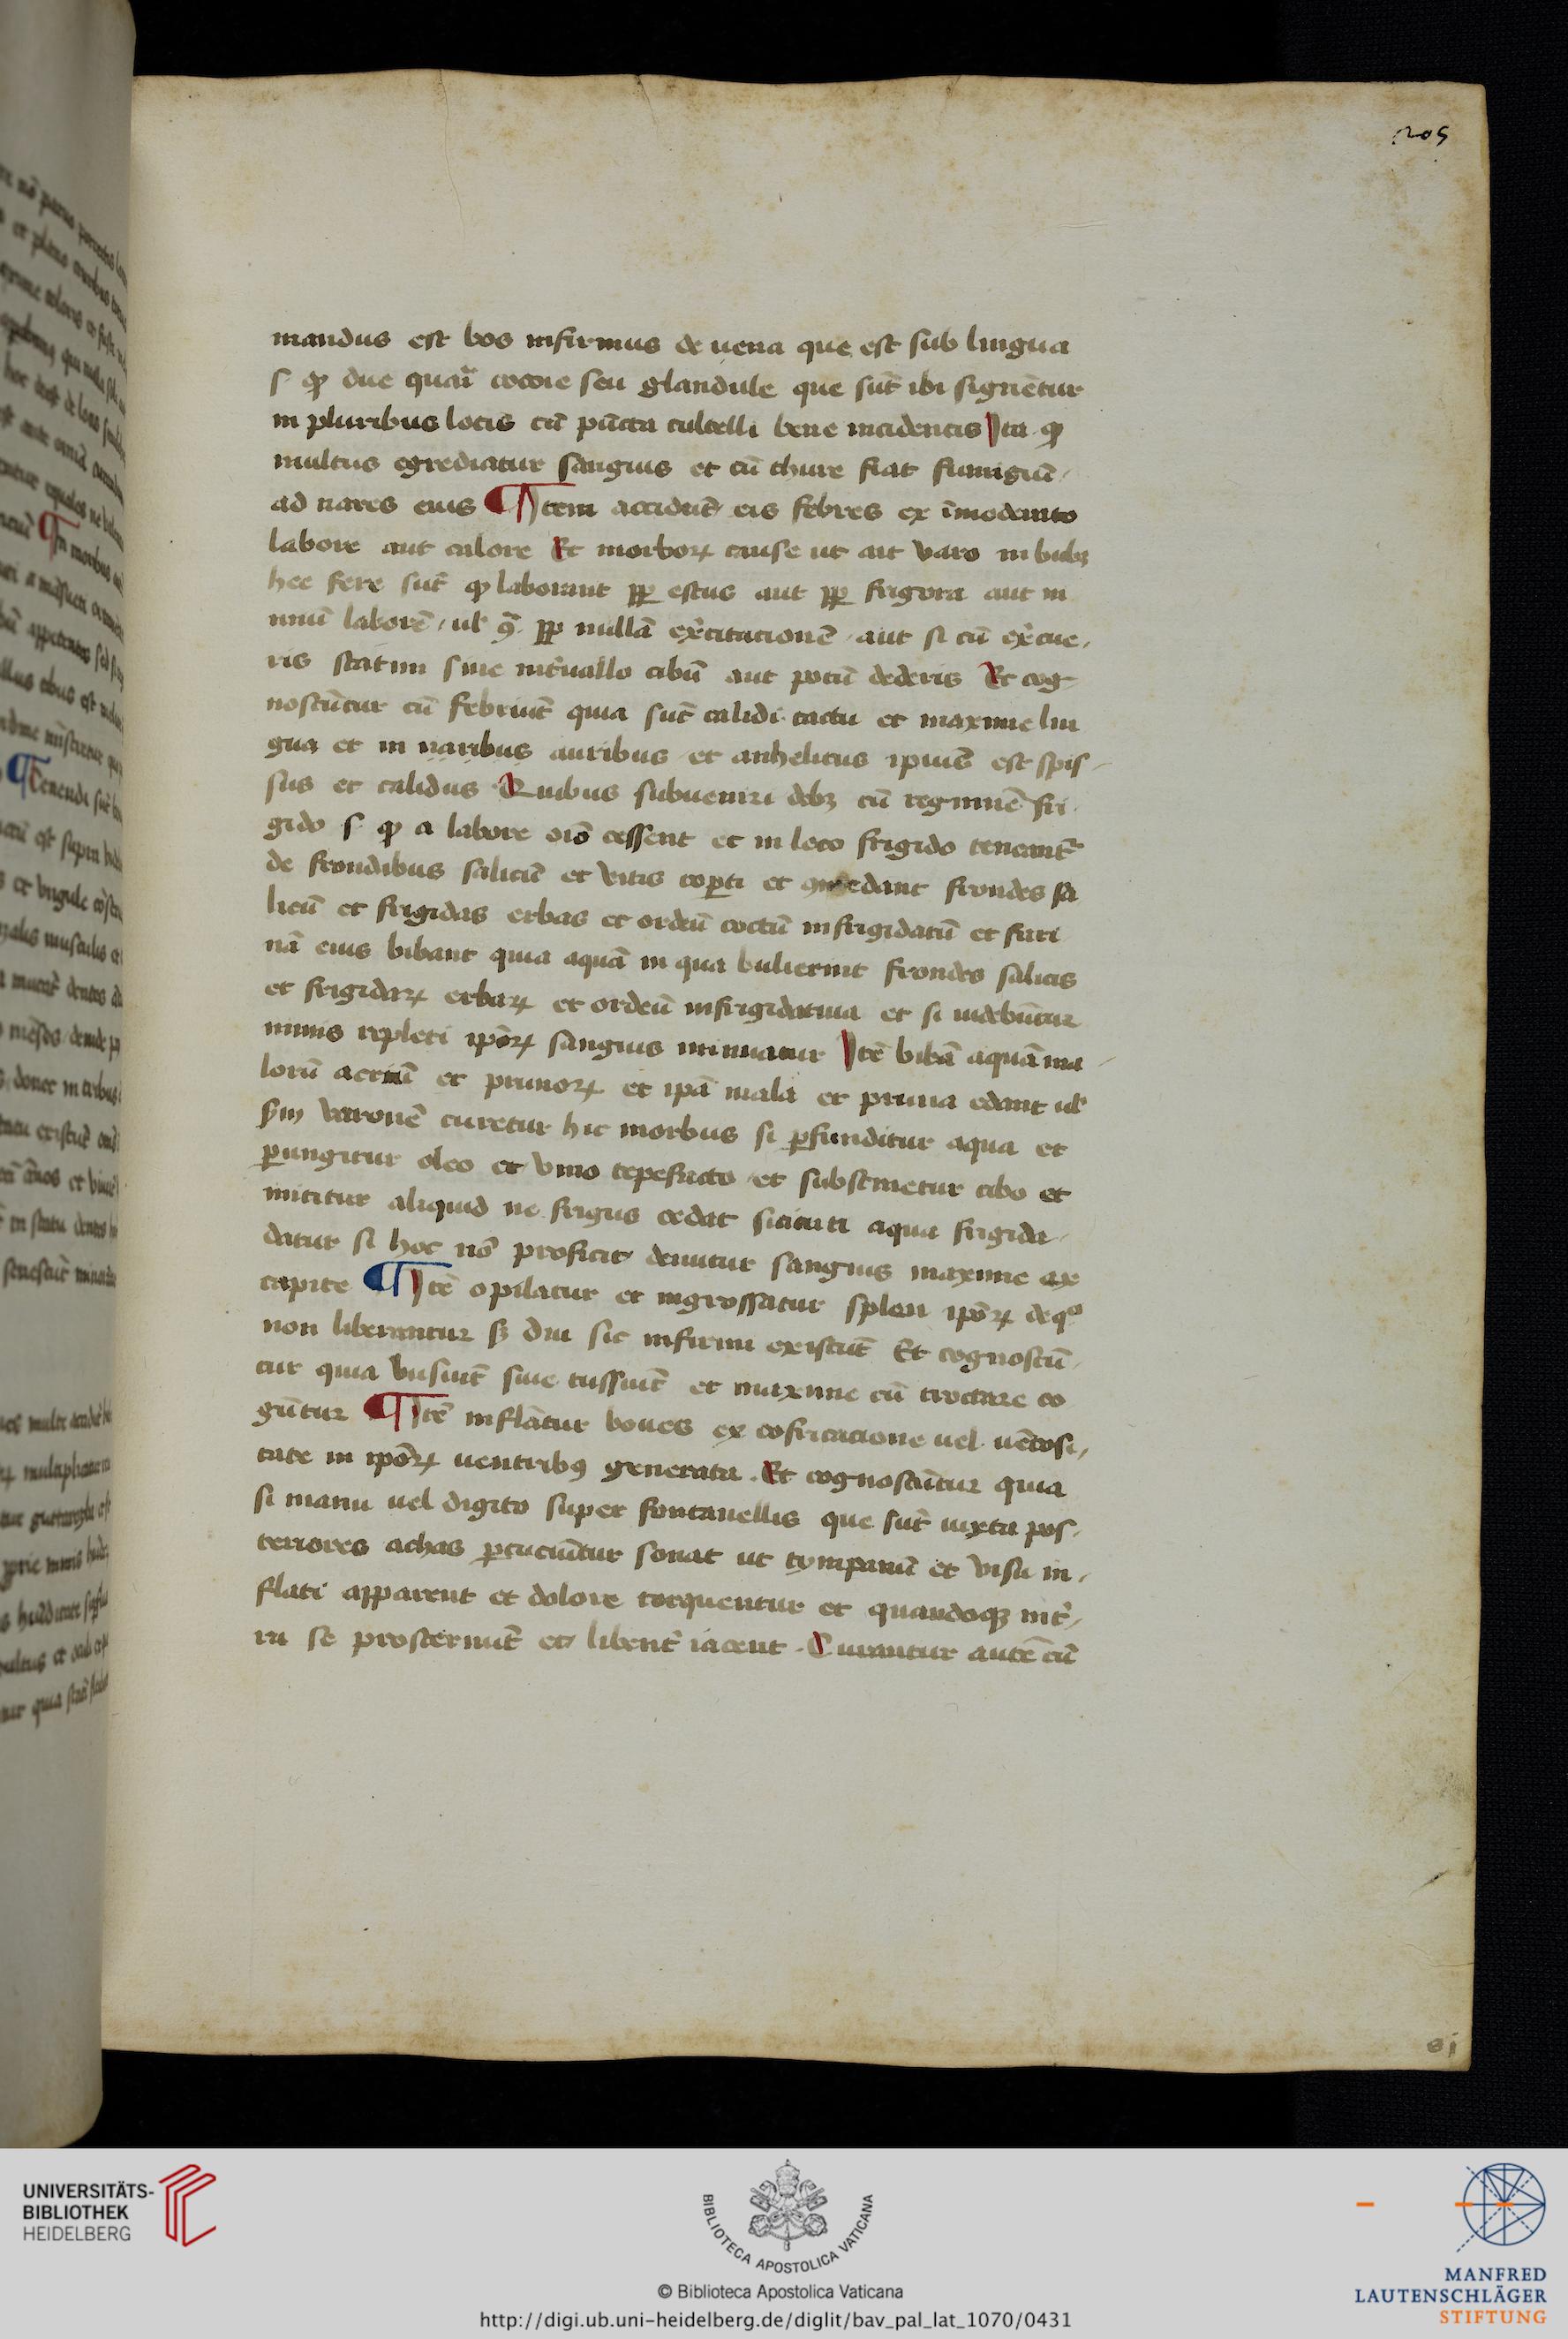 205
mandus est bos infirmus de uena que est sub lingua
s. ꝙ due quaı̃ cocoie seu glandule que sūt ibi signētur
in pluribus locis cū pūcta cultelli bene incidentis Ita ꝙ
multus egrediatur sanguis et cū thure fiat fumigiū
ad nares eius ¶ Item accidūt eis febres ex īmoderato
labore aut calore Et morboꝝ cause ut ait varo in bubꝫ
hec fere sūt ꝙ laborant ꝓp estus aut ꝓp frigora aut ni
miū laborē ul' ꝯ̄ ꝓp nullā ex̄citacionē aut si cū ex̄cue
ris statim sine int̄uallo cibū aut potū dederis Et cog
noscūtur cū febriūt quia sūt calidi tactu et maxime lin
gua et in naribus auribus et anhelitus ipius̄ est spis
sus et calidus Quibus subueniri debꝫ cū regimiē fri
gido s. ꝙ a labore oīo cessent et in loco frigido teneant᷑
de frondibus saliciū et vitis cop̄ti et ꝯmedant frondes sa
licū et frigidas erbas et ordeū coctū infrigidatū et fari
nā eius bibant quia aquā in qua bulierint frondes salicis
et frigidaꝝ erbaꝝ et ordeū infrigidatiua et si uidebūtur
nimis repleti ipōꝝ sanguis minuatur Itē bibā aquā ma
lorū acruū et prunoꝝ et ipā mala et pruna edant ul'
sm varonē curetur hic morbus si ꝑfunditur aqua et
ꝑungitur oleo et vino tepefacto et substinetur cibo et
inicitur aliquid ne frigus cedat sicienti aqua frigida
datur si hoc nō proficit demitur sanguis maxime ex
capite ¶ Itē opilatur et ingrossatur splen ipōꝝ de qo
non liberantur sꝫ diu sic infirmi existūt Et cognoscū
tur quia busiūt siue tussiūt et maxime cū troctare co
gūtur ¶ Itē inflātur boues ex cōfricacione uel uētosi
tate in ipōꝝ uentribꝰ generata. Et cognoscūtur quia
si manu uel digito super fontanellis que sūt iuxta pos
teriores achas ꝑcuciūtur sonat ut tympanū et visu in
flati apparent et dolore torquentur et quandoqꝫ int̄
ra se prosternūt et libent̄ iacent. Curantur autē cū
ei
UNIVERSITÄTS-
BIBLIOTHEK
HEIDELBERG
BIBLIOTECA APOSTOLICA VATICANA
© Biblioteca Apostolica Vaticana
http://digi.ub.uni-heidelberg.de/diglit/bav_pal_lat_1070/0431
MANFRED
LAUTENSCHLÄGER
STIFTUNG